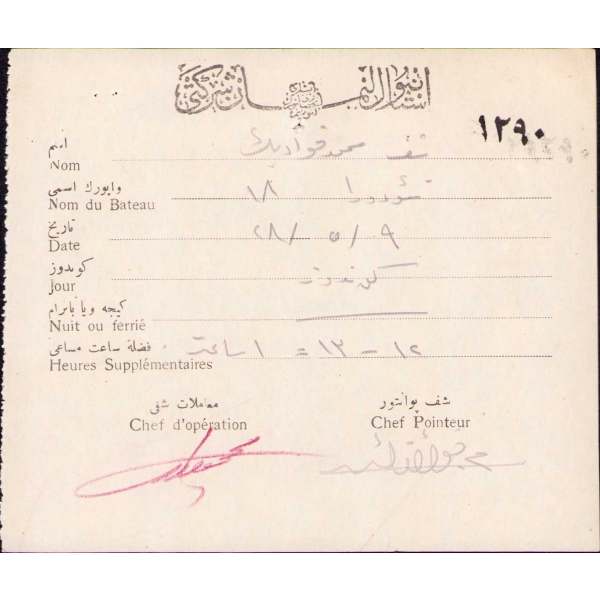 استانبول لیمان شركتی
١٢٩٠
اسم
Nom
شف محمد فؤاد بك
واپورك اسمی
Nom du Bateau
تئودورا ١٨
تاريخ
Date
٢٨/٥/٩
كوندوز
Jour
كوندوز
كيجه ويا بايرام
Nuit ou ferrié
فضله ساعت مساعی
Heures Supplémentaires
١٢ – ١٣ = ١ ساعت
معاملات شفی
Chef d'opération
شف پوانتور
Chef Pointeur